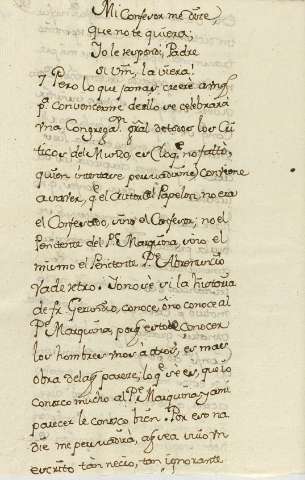 Mi Confesor me dice,
que no te quiera;
Io le respondi, Padre
si Vm, la viera!
Y Pero lo que jamas creere aung.
pa. Convencerme de ello se celebrara
vna Congregaon. gral de todos los Cri
ticos del Mundo, es Cloq. no faltò,
quien intentase persuadirme Conviene
a saver, q. el autor del Papelon, no era
el Confesado, sino el Confesor; no el
Penitente del Pe. Marquina, sino el
mismo el Penitente Pe. Abrenuncio
Vade retro. Io no se si la historia
de fr. Gerundio, conoce, ò no conoce al
Pe. Marquina, porq. esto de Conocer
los hombres vnos à otros, es mas
obra de laq. parece; loq. se es, que io
conosco mucho al Pe. Marquina, y ami
parecer le conosco bien. Por eso na
die me persuadirà, aq. sea suio vn
escrito tan necio, tan ignorante